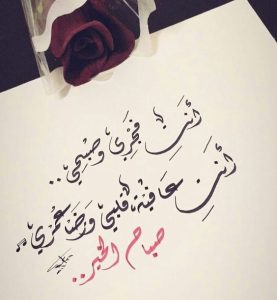 أنتِ فجري وصبحي..
أنتِ عافية قلبي ورضا عمري..
صباح الخير..